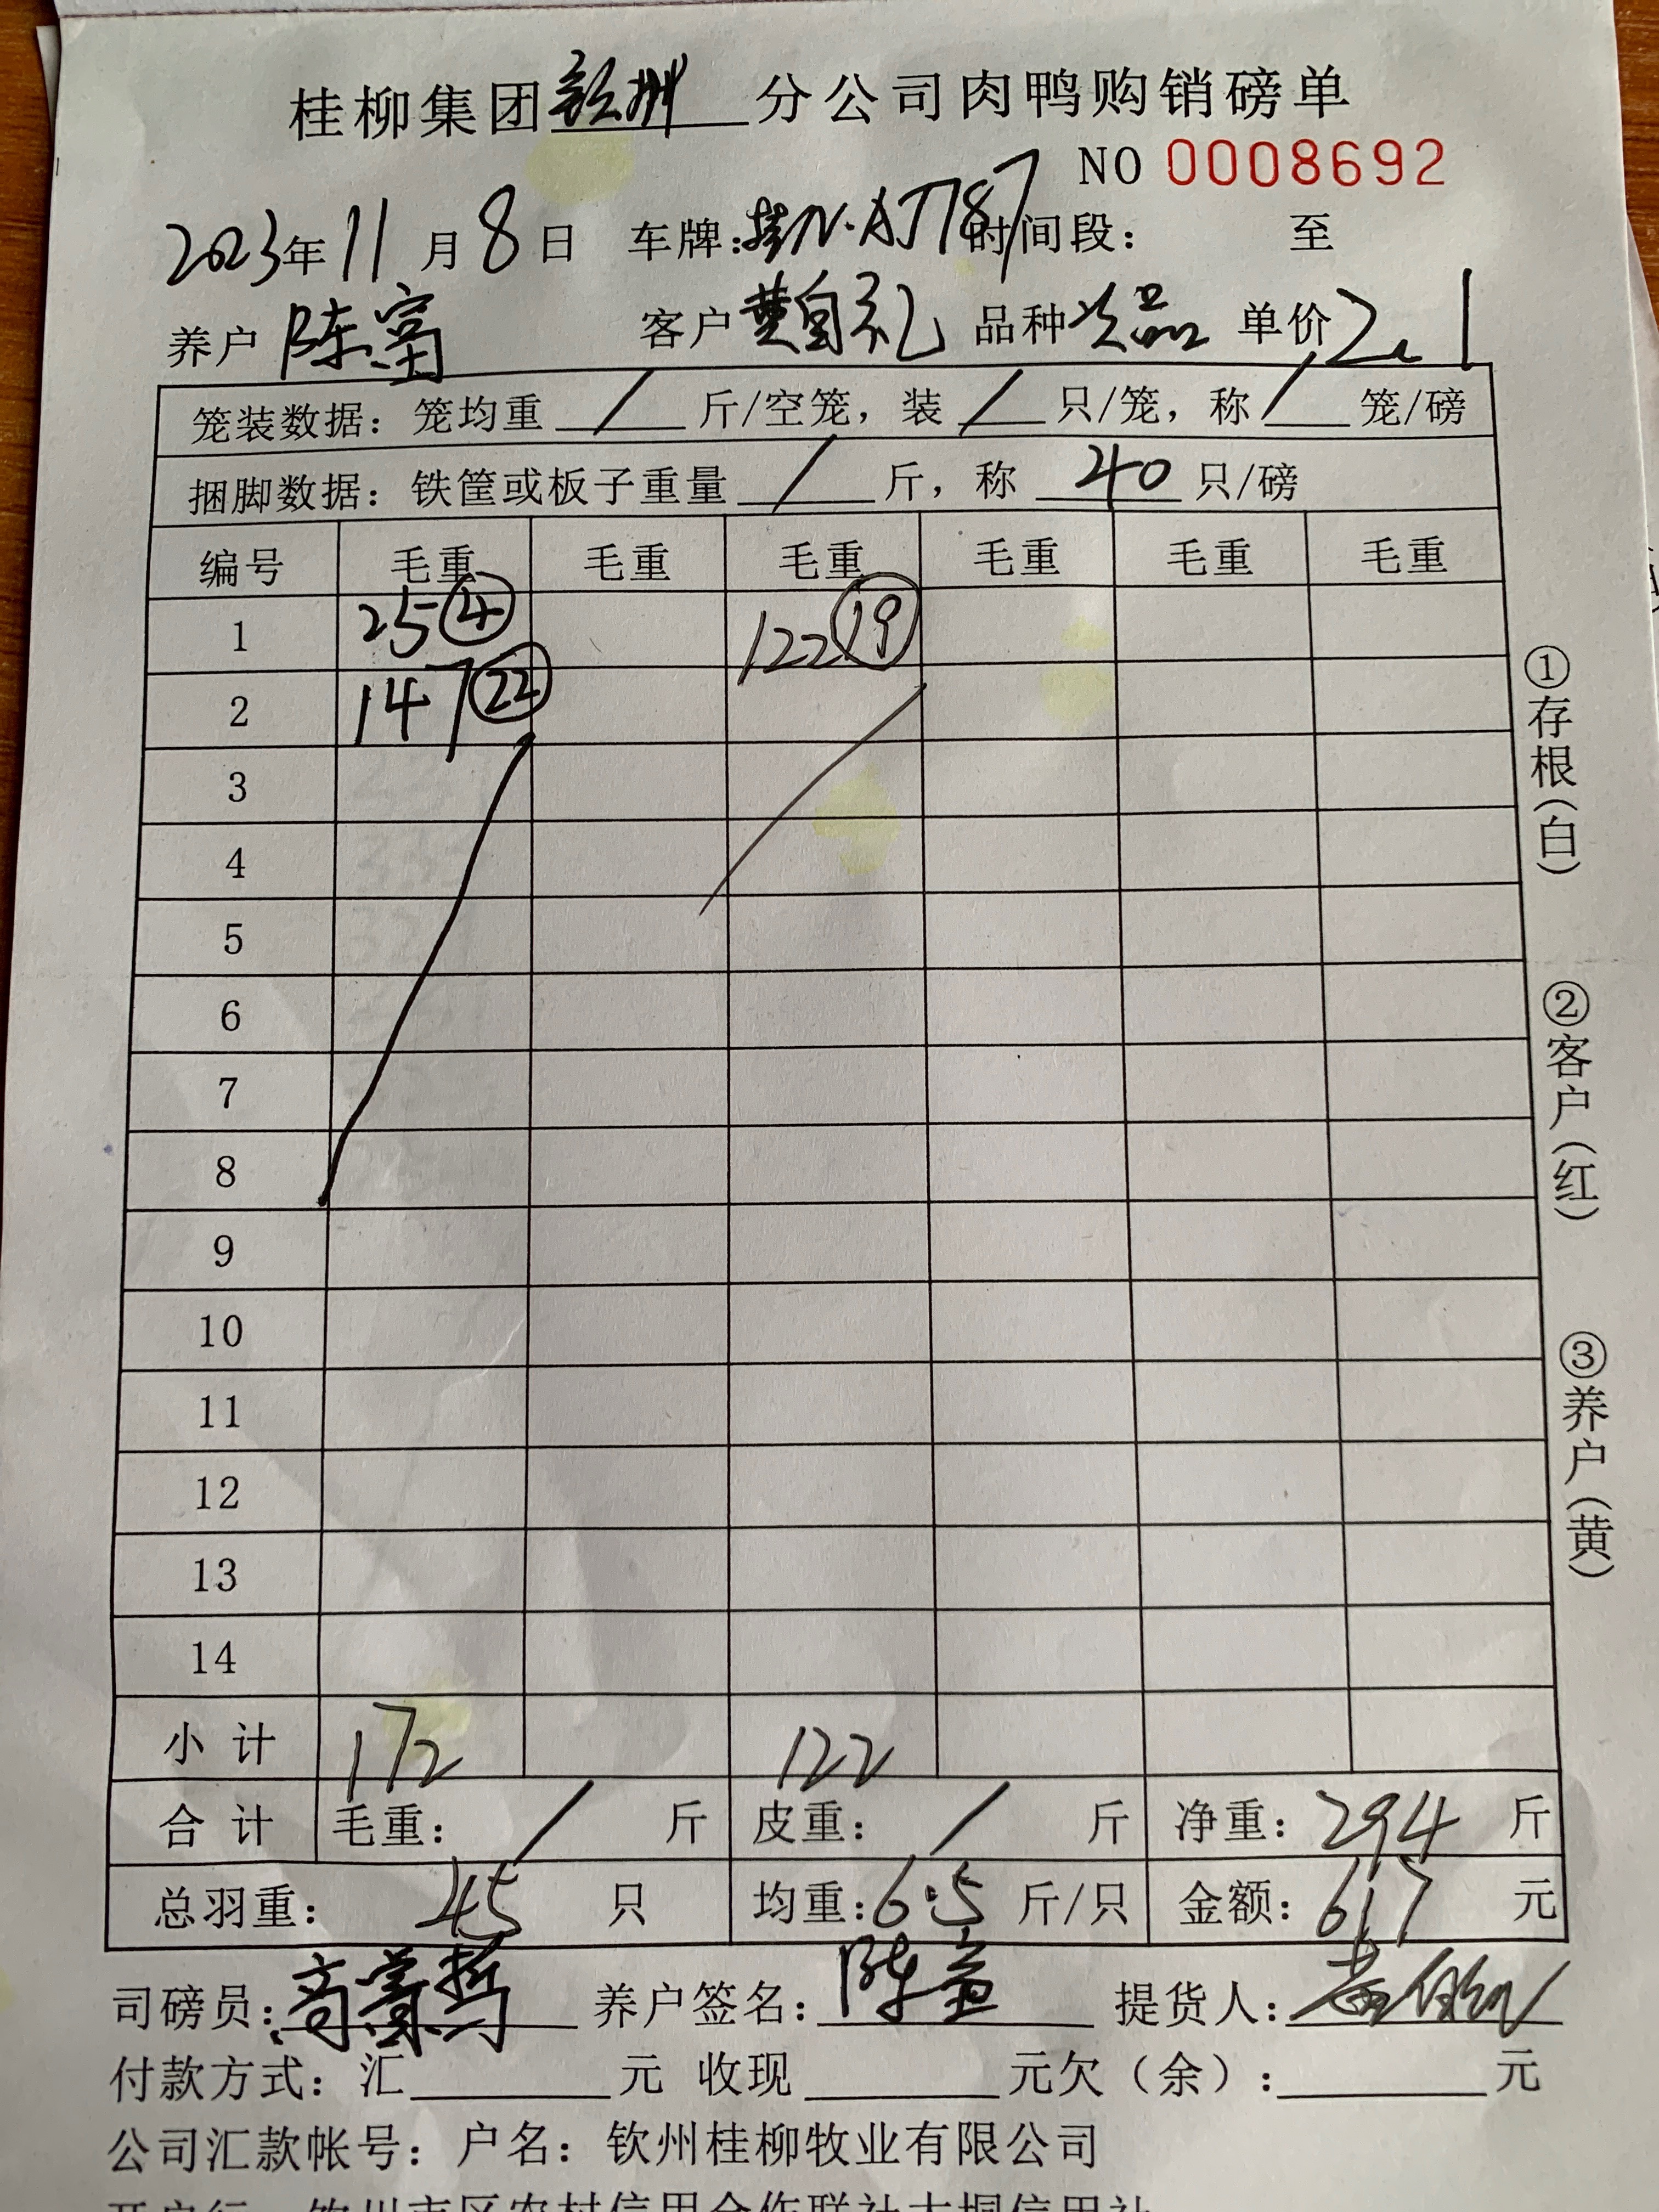 桂柳集团钦州分公司肉鸭购销磅单
NO 0008692
2023年11月8日 车牌:桂N·AJ787 时间段: 至
养户 陈富 客户 黄自礼 品种 次品 单价 2.1
笼装数据: 笼均重 / 斤/空笼, 装 / 只/笼, 称 / 笼/磅
捆脚数据: 铁筐或板子重量 / 斤, 称 40 只/磅
编号 毛重 毛重 毛重 毛重 毛重 毛重
1 25 ④ 122 ⑲
2 147 ㉒
3
4
5
6
7
8
9
10
11
12
13
14
小计 172 122
合计 毛重: / 斤 皮重: / 斤 净重: 294 斤
总羽重: 45 只 均重: 6.5 斤/只 金额: 617 元
司磅员: 养户签名: 陈富 提货人:
付款方式: 汇 元 收现 元欠(余): 元
公司汇款帐号: 户名: 钦州桂柳牧业有限公司
①存根(白)
②客户(红)
③养户(黄)